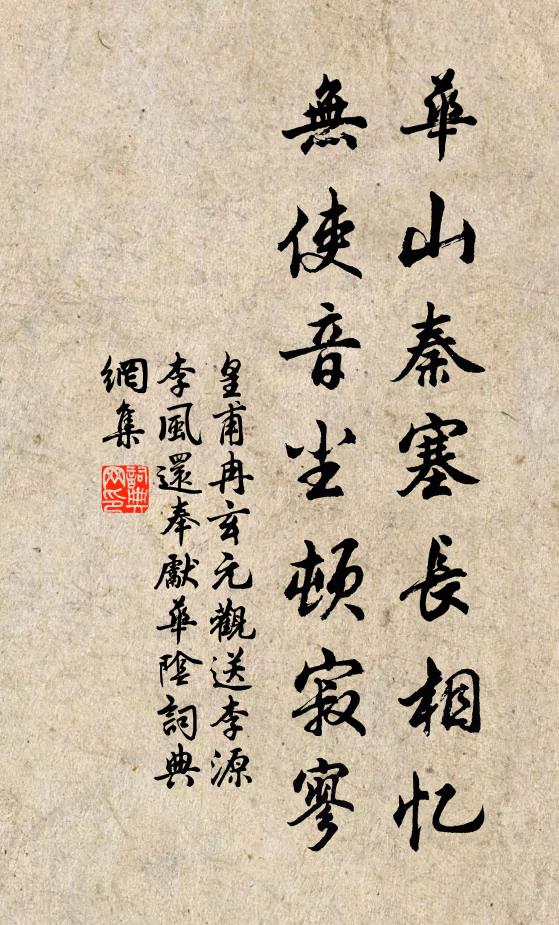 華山秦塞長相忆
無使音尘頓寂寥
皇甫冉玄元觀送李源
李風還奉獻華陰詞典
網集
詞典
网印